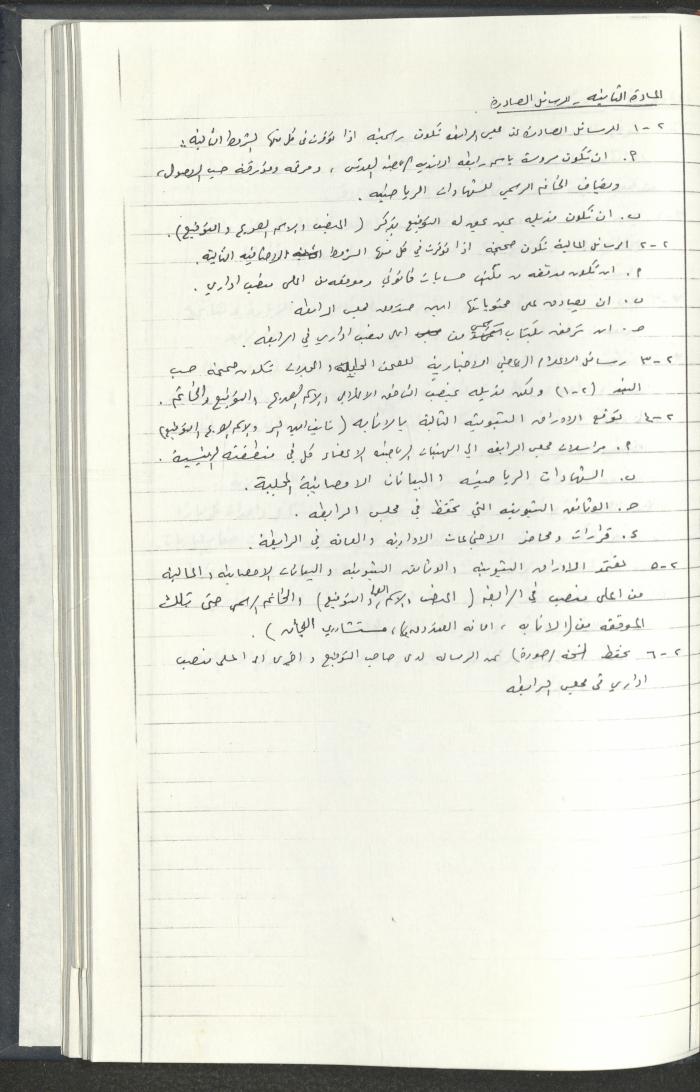 المادة الثانية - الرسائل الصادرة
٢-١ الرسائل الصادرة عن مجلس الرابطة تكون رسمية اذا توفرت في كل منها الشروط التالية :
٢. ان تكون مروسة باسم رابطة الاندية القدس ، ومرقمة ومؤرقة حسب الاصول ،
ويضاف الخاتم الرسمي للشهادات الرياضية .
ب. ان تكون مذيلة بمن يحق له التوقيع بذكر ( المنصب والاسم الصريح والتوقيع ) .
٢-٢ الرسائل المالية تكون صحيحة اذا توفرت في كل منها الشروط الاضافية التالية .
٢. ان تكون مدققة من مكتب حسابات قانوني وموقعة من اعلى منصب اداري .
ب. ان يصادق على محتوياتها امين صندوق مجلس الرابطة
ج. ان ترفق بكتاب رسمي من اعلى منصب اداري في الرابطة .
٢-٣ رسائل الاعلام الرياضي الاخبارية للصحف المحلية والمجلات تكون صحيحة حسب
البند (٢-١) ولكن مذيلة بمنصب الناطق الاعلامي والاسم الصريح والتوقيع والخاتم .
٢-٤ توقع الاوراق الثبوتية التالية بالانابة ( نائب امين السر والاسم الصريح التوقيع )
٢. مراسلات مجلس الرابطة الى الهيئات الرياضية الاعضاء كل في منطقته الرئيسية .
ب. الشهادات الرياضية والبيانات الاحصائية المحلية .
ج. الوثائق الثبوتية التي تحفظ في مجلس الرابطة .
د. قرارات ومحاضر الاجتماعات الادارية والعامة في الرابطة .
٢-٥ تعتمد الاوراق الثبوتية والوثائق الثبوتية والبيانات الاحصائية والمالية
من اعلى منصب في الرابطة ( المنصب والاسم والتوقيع ) والخاتم الرسمي حتى تلك
الموقعة من ( الانابة ، امانة الصندوق ، مستشاري اللجان ) .
٢-٦ تحفظ نسخة (صورة) عن الرسالة لدى صاحب التوقيع واخرى لدى اعلى منصب
اداري في مجلس الرابطة